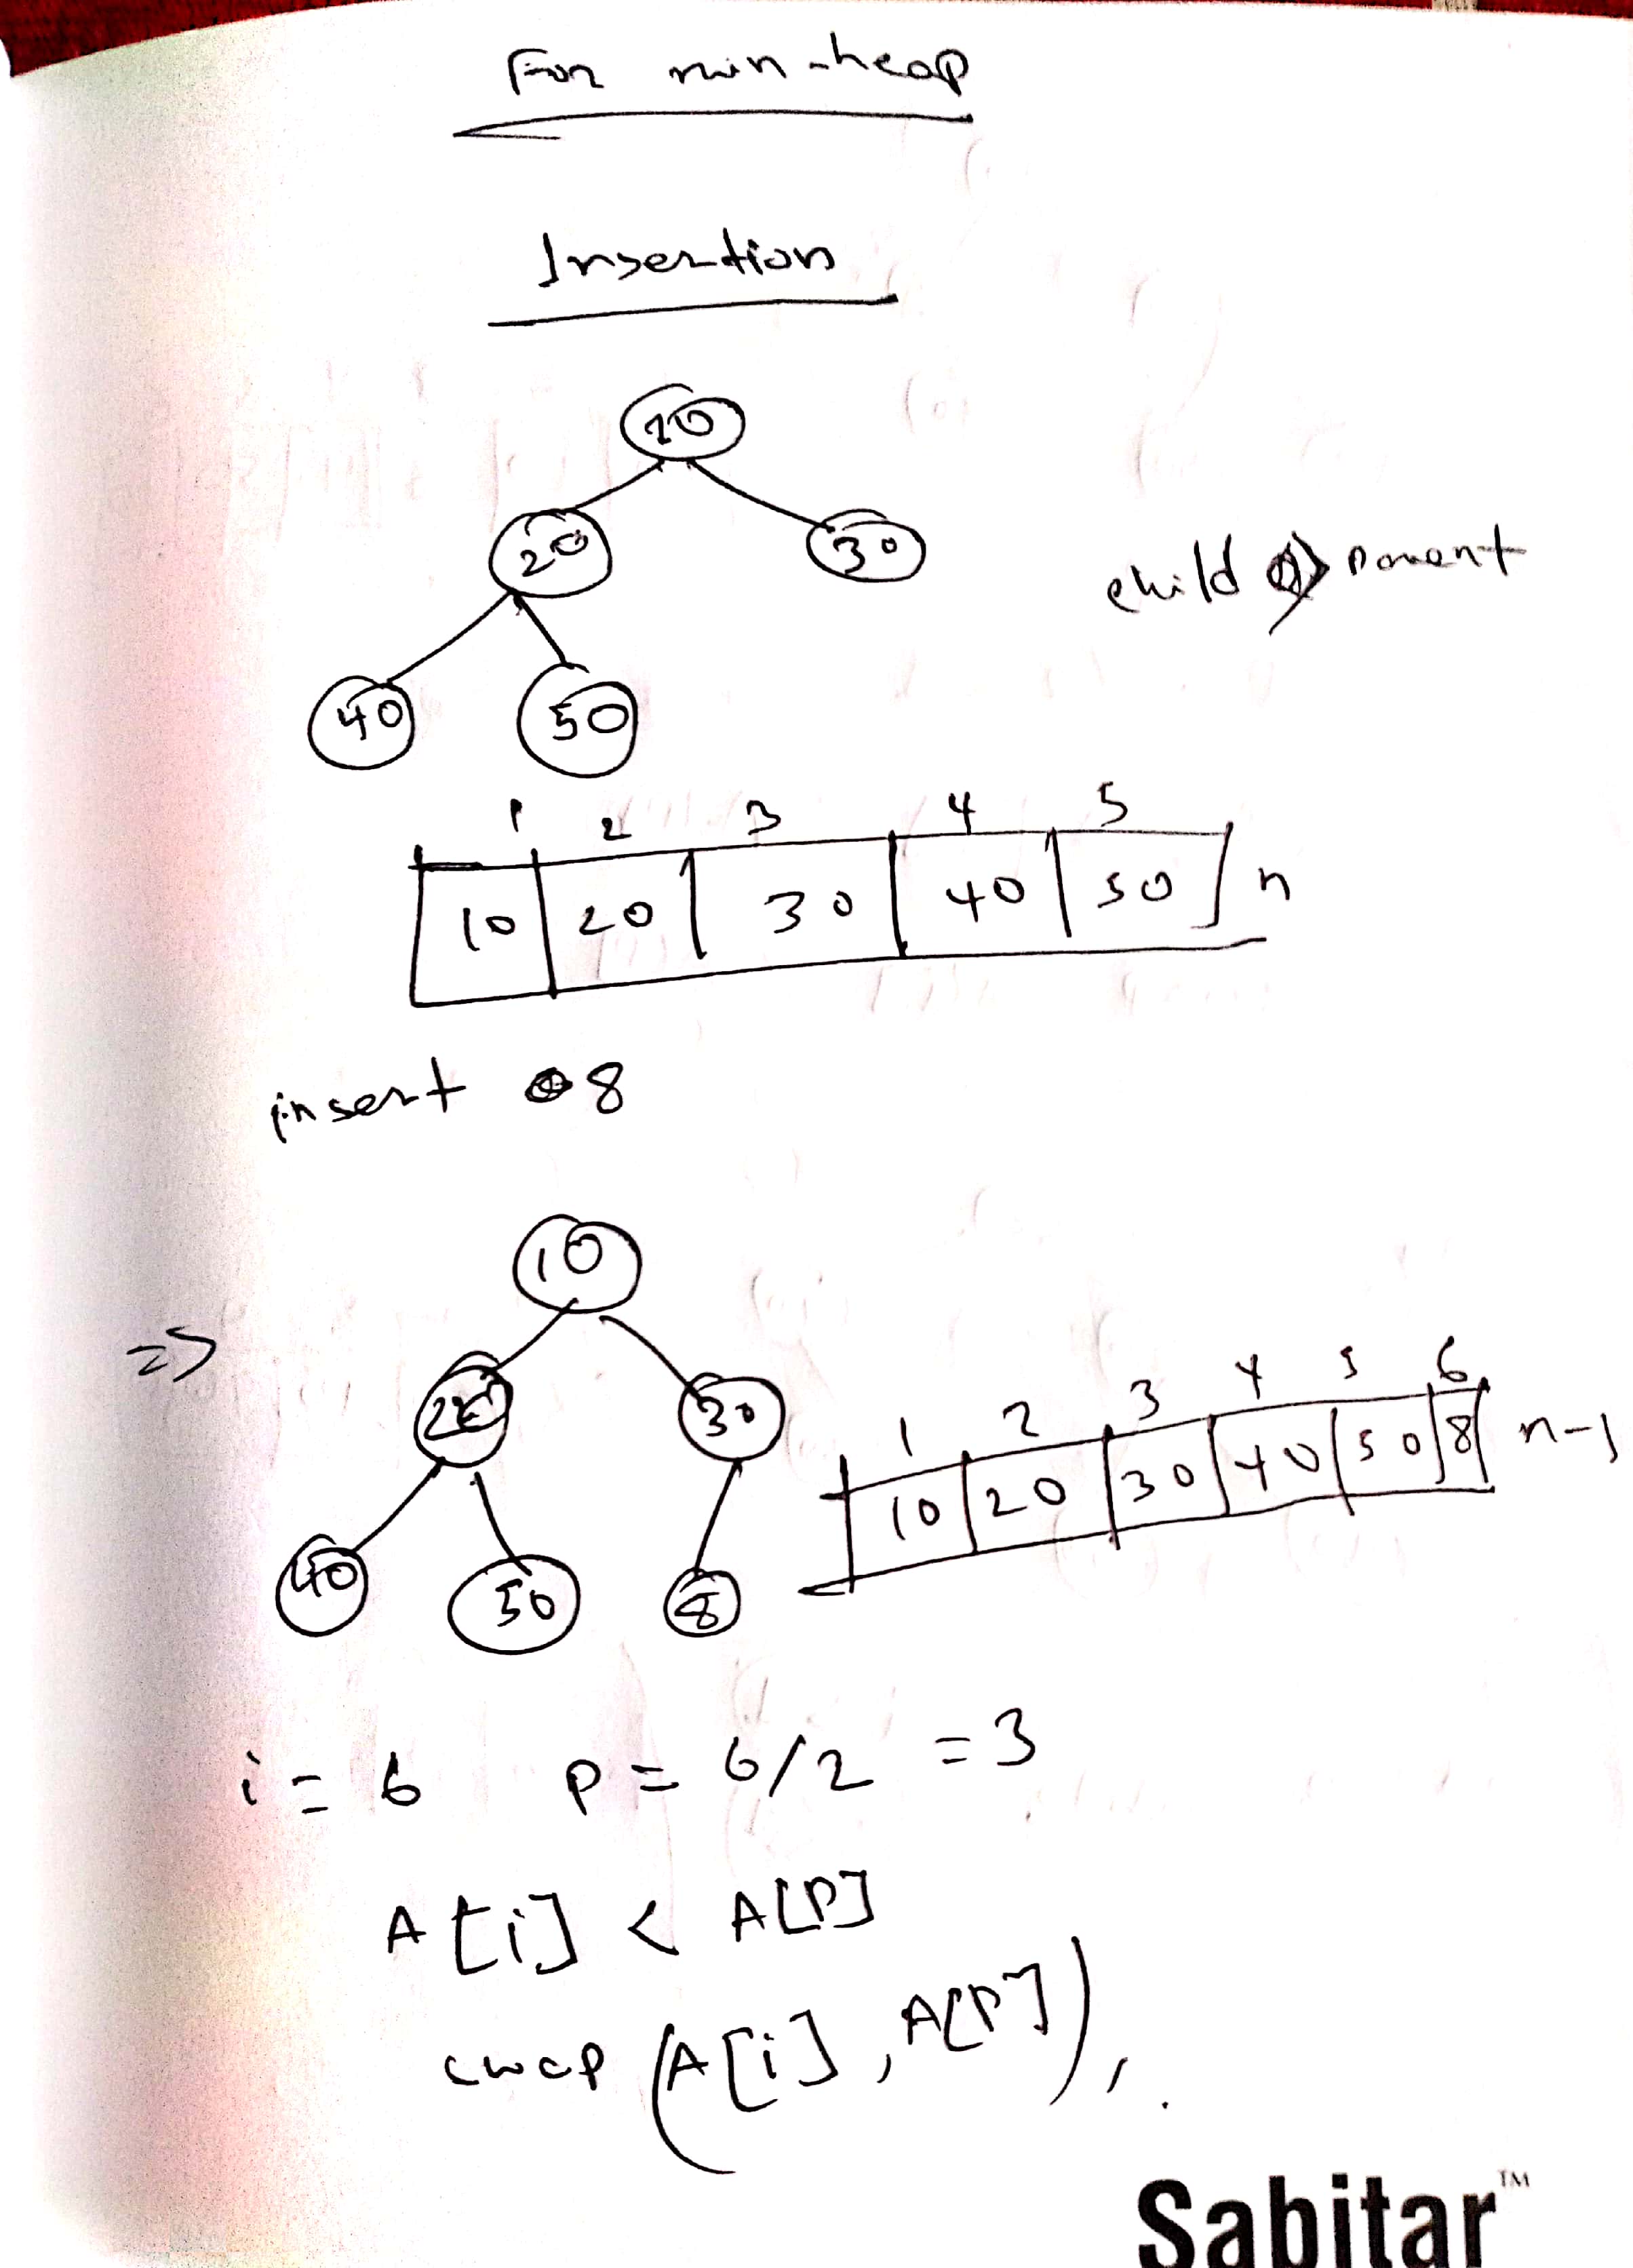 For min-heap
Insertion
10
20 30
child > parent
40 50
1 2 3 4 5
10 20 30 40 50 n
insert 8
10
=> 20 30
40 50 8
1 2 3 4 5 6
10 20 30 40 50 8 n-1
i = 6 P = 6/2 = 3
A[i] < A[P]
swap (A[i], A[P]),.
Sabitar™